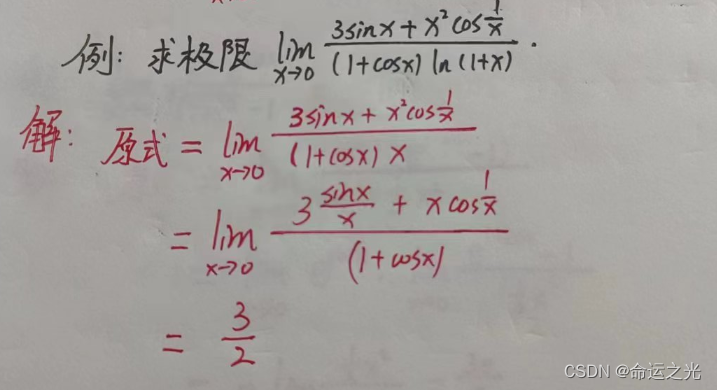 例: 求极限 lim x→0 (3sinx + x²cos 1/x) / ((1+cosx) ln(1+x)) .
解: 原式 = lim x→0 (3sinx + x²cos 1/x) / ((1+cosx) x)
= lim x→0 (3 sinx/x + x cos 1/x) / (1+cosx)
= 3/2
CSDN @命运之光